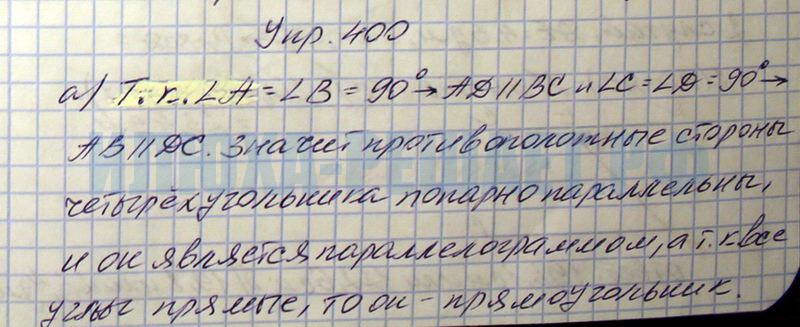 Упр. 400
а) Т.к. ∠A = ∠B = 90° → AD || BC и ∠C = ∠D = 90° →
AB || DC. Значит противоположные стороны
четырёхугольника попарно параллельны,
и он является параллелограммом, а т.к все
углы прямые, то он - прямоугольник.